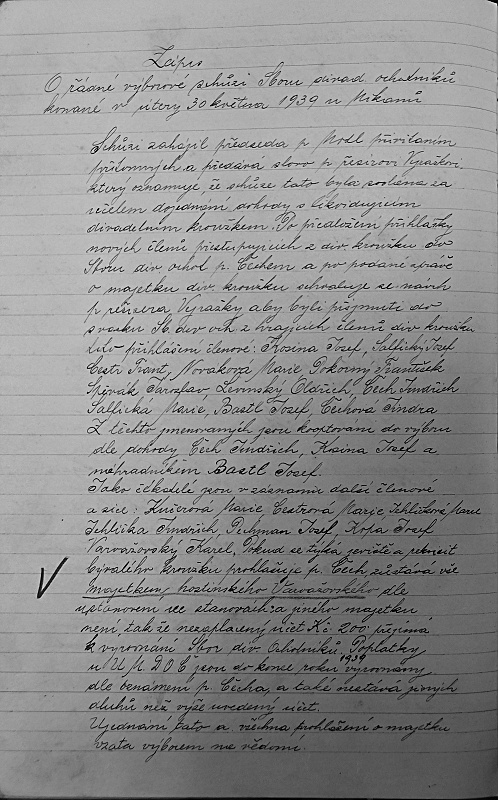 Zápis
O řádné výborové schůzi Sboru divad. ochotníků
konané v úterý 30 května 1939 u Mikanů
Schůzi zahájil předseda p. Modl přivítáním
přítomných a předává slovo p. řesizovi Vyražkovi
který oznamuje, že schůze tato byla svolána za
účelem dojednání dohody s likvidujícím
divadelním kroužkem. Po předložení přihlášky
nových členů přestupujících z div. kroužku do
Sboru div. ochot p. Čechem a po podané zprávě
o majetku div. kroužku schvaluje se návrh
p. režiséra Vyražky aby byli přijmuti do
svazku Sb. div. och. z hrajících členů div. kroužku
tito přihlášení členové: Rosina Josef, Salfický Josef
Cestr Frant, Nováková Marie Pokorný František
Spěvák Jaroslav Levinský Oldřich, Čech Jindřich
Salfická Marie, Bastl Josef, Čechová Jindra
Z těchto jmenovaných jsou kooptováni do výboru
dle dohody Čech Jindřich, Rosina Josef a
náhradníkem Bastl Josef.
Jako čekatelé jsou v záznamu další členové
a sice: Kučerová Marie Cestrová Marie Jehličková Marie
Jehlička Jindřich, Pechman Josef, Kopa Josef
Varvažovský Karel, Pokud se týká jeviště a rekvisit
bývalého kroužku prohlašuje p. Čech, zůstává vše
majetkem hostinského Varvažovského dle
ustanovení ve stanovách a jiného majetku
není, tak že nezaplacený účet Kč 200 přejímá
k vyrovnání Sbor div. Ochotníků. Poplatky
u Ú. M. D. O. Č jsou do konce roku 1939 vyrovnány
dle oznámení p. Čecha, a také nestává jiných
dluhů než výše uvedený účet.
Ujednání tato a všechna prohlášení o majetku
vzata výborem na vědomí.
V